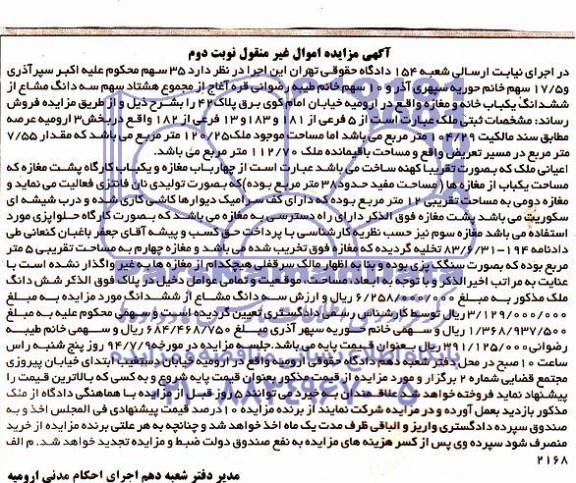 آگهی مزایده اموال غیر منقول نوبت دوم
در اجرای نیابت ارسالی شعبه ۱۵۴ دادگاه حقوقی تهران این اجرا در نظر دارد ۳۵ سهم محکوم علیه اکبر سپرآذری
و ۱۷/۵ سهم خانم حوریه سپهری آذر و ۱۰ سهم خانم طیبه رضوانی قره آغاج از مجموع هشتاد سهم سه دانگ مشاع از
ششدانگ یکباب خانه و مغازه واقع در ارومیه خیابان امام کوی برق پلاک ۴۲ را بشرح ذیل و از طریق مزایده فروش
رساند: مشخصات ثبتی ملک عبارت است از ۵ فرعی از ۱۸۱ و ۱۸۳ و ۱۳ فرعی از ۱۸۲ واقع در بخش ۳ ارومیه عرصه
مطابق سند مالکیت ۱۰۴/۲۹ متر مربع می باشد اما مساحت موجود ملک ۱۲۰/۲۵ متر مربع می باشد که مقدار ۷/۵۵
متر مربع در مسیر تعریض واقع و مساحت باقیمانده ملک ۱۱۲/۷۰ متر مربع می باشد.
اعیانی ملک که بصورت تقریبا کهنه ساخت می باشد عبارت است از چهارباب مغازه و یکباب کارگاه پشت مغازه که
مساحت یکباب از مغازه ها (مساحت مفید حدود ۳۸ متر مربع بوده) که بصورت تولیدی نان فانتزی فعالیت می نماید و
مغازه دومی به مساحت تقریبی ۱۱ متر مربع بوده که دارای کف سرامیک دیوارها کاشی کاری شده و درب شیشه ای
سکوریت می باشد پشت مغازه فوق الذکر دارای راه دسترسی به مغازه می باشد که بصورت کارگاه حلواپزی مورد
استفاده می باشد مغازه سوم نیز حسب نظریه کارشناسی با پرداخت حق کسب و پیشه آقای جعفر باغبان کنعانی طی
دادنامه ۱۹۴-۸۳/۶/۳۱ تخلیه گردیده که مغازه فوق تخریب شده می باشد و مغازه چهارم به مساحت تقریبی ۵ متر
مربع بوده که بصورت سنگک پزی بوده و بنا به اظهار مالک سرقفلی هیچکدام از مغازه ها به غیر واگذار نشده است با
عنایت به مراتب اخیر الذکر و با توجه به ابعاد، مساحت، موقعیت و تمامی عوامل دخیل در پلاک فوق الذکر شش دانگ
ملک مذکور به مبلغ ۶/۲۵۸/۰۰۰/۰۰۰ ریال و ارزش سه دانگ مشاع از ششدانگ مورد مزایده به مبلغ
۳/۱۲۹/۰۰۰/۰۰۰ ریال توسط کارشناس رسمی دادگستری تعیین گردیده است و سهمی محکوم علیه به مبلغ
۱/۳۶۸/۹۳۷/۵۰۰ ریال و سهمی خانم حوریه سپهر آذری مبلغ ۶۸۴/۴۶۸/۷۵۰ ریال و سهمی خانم طیبه
رضوانی ۳۹۱/۱۲۵/۰۰۰ ریال بعنوان قیمت پایه می باشد. جلسه مزایده در مورخه ۹۴/۷/۹ روز پنج شنبه راس
ساعت ۱۰ صبح در محل دفتر شعبه دهم دادگاه حقوقی ارومیه واقع در ارومیه خیابان در نتیجه ابتدای خیابان پیروزی
مجتمع قضایی شماره ۲ برگزار و مورد مزایده از قیمت مذکور بعنوان قیمت پایه شروع و به کسی که بالاترین قیمت را
پیشنهاد نماید فروخته خواهد شد. علاقمندان به خرید می توانند ۵ روز قبل از مزایده با هماهنگی دادگاه از ملک
مذکور بازدید بعمل آورده و در مزایده شرکت نمایند از برنده مزایده ۱۰ درصد قیمت پیشنهادی فی المجلس اخذ و به
صندوق سپرده دادگستری واریز و الباقی ظرف مدت یک ماه اخذ خواهد شد و چنانچه به هر علتی برنده مزایده از خرید
منصرف شود سپرده وی پس از کسر هزینه های مزایده به نفع صندوق دولت ضبط و مزایده تجدید خواهد شد. م الف
۲۱۶۸
مدیر دفتر شعبه دهم اجرای احکام مدنی ارومیه